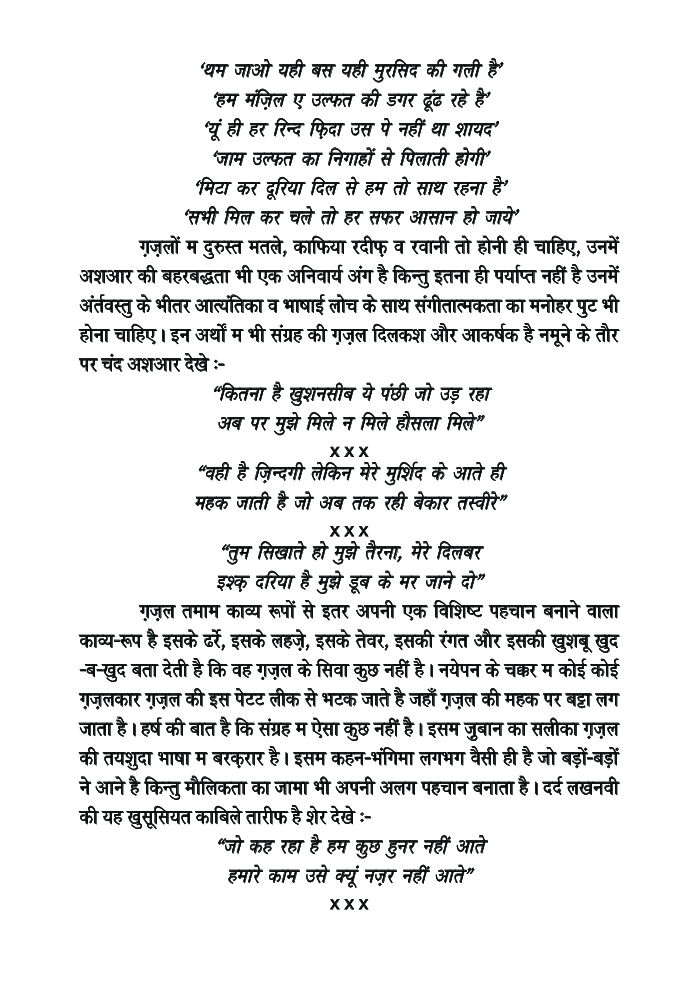 ‘थम जाओ यही बस यही मुरसिद की गली है’
‘हम मंज़िल ए उल्फत की डगर ढूंढ रहे है’
‘यूं ही हर रिन्द फ़िदा उस पे नहीं था शायद’
‘जाम उल्फत का निगाहों से पिलाती होगी’
‘मिटा कर दूरिया दिल से हम तो साथ रहना है’
‘सभी मिल कर चले तो हर सफर आसान हो जाये’
ग़ज़लों म दुरुस्त मतले, काफिया रदीफ़ व रवानी तो होनी ही चाहिए, उनमें
अशआर की बहरबद्धता भी एक अनिवार्य अंग है किन्तु इतना ही पर्याप्त नहीं है उनमें
अंर्तवस्तु के भीतर आत्यंतिका व भाषाई लोच के साथ संगीतात्मकता का मनोहर पुट भी
होना चाहिए। इन अर्थों म भी संग्रह की ग़ज़ल दिलकश और आकर्षक है नमूने के तौर
पर चंद अशआर देखे :-
“कितना है खुशनसीब ये पंछी जो उड़ रहा
अब पर मुझे मिले न मिले हौसला मिले”
x x x
“वही है ज़िन्दगी लेकिन मेरे मुर्शिद के आते ही
महक जाती है जो अब तक रही बेकार तस्वीरे”
x x x
“तुम सिखाते हो मुझे तैरना, मेरे दिलबर
इश्क़ दरिया है मुझे डूब के मर जाने दो”
ग़ज़ल तमाम काव्य रूपों से इतर अपनी एक विशिष्ट पहचान बनाने वाला
काव्य-रूप है इसके ढर्रे, इसके लहज़े, इसके तेवर, इसकी रंगत और इसकी खुशबू खुद
-ब-खुद बता देती है कि वह ग़ज़ल के सिवा कुछ नहीं है। नयेपन के चक्कर म कोई कोई
ग़ज़लकार ग़ज़ल की इस पेटट लीक से भटक जाते है जहाँ ग़ज़ल की महक पर बट्टा लग
जाता है। हर्ष की बात है कि संग्रह म ऐसा कुछ नहीं है। इसम जुबान का सलीका ग़ज़ल
की तयशुदा भाषा म बरक़रार है। इसम कहन-भंगिमा लगभग वैसी ही है जो बड़ों-बड़ों
ने आने है किन्तु मौलिकता का जामा भी अपनी अलग पहचान बनाता है। दर्द लखनवी
की यह खुसूसियत काबिले तारीफ है शेर देखे :-
“जो कह रहा है हम कुछ हुनर नहीं आते
हमारे काम उसे क्यूं नज़र नहीं आते”
x x x